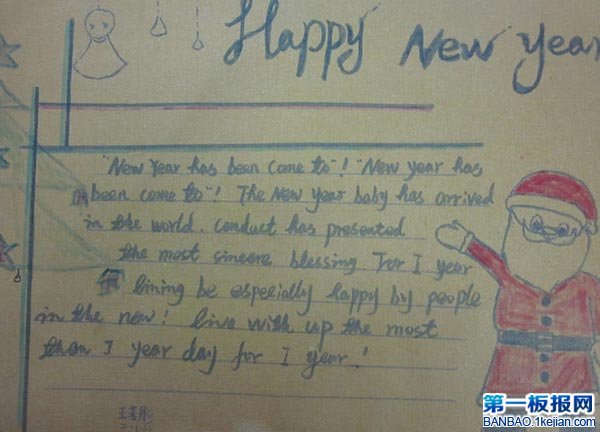 Happy New Year
"New Year has been come to"! "New year has
been come to"! The New year baby has arrived
in the world. Conduct has presented
the most sincere blessing. For I year
lining be especially happy by people
in the new! live with up the most
than I year day for I year!
第一板报网
BANBAO.1kejian.com